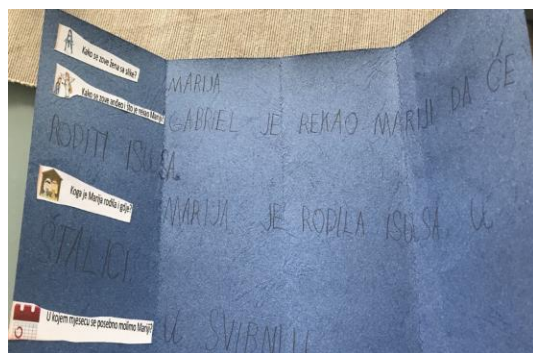 Kako se zove žena sa slike?
MARIJA
Kako se zove anđeo i što je rekao Mariji?
GABRIEL JE REKAO MARIJI DA ĆE
RODITI ISUSA.
Koga je Marija rodila i gdje?
MARIJA JE RODILA ISUSA U
ŠTALICI
U kojem mjesecu se posebno molimo Mariji?
U SVIBNJU